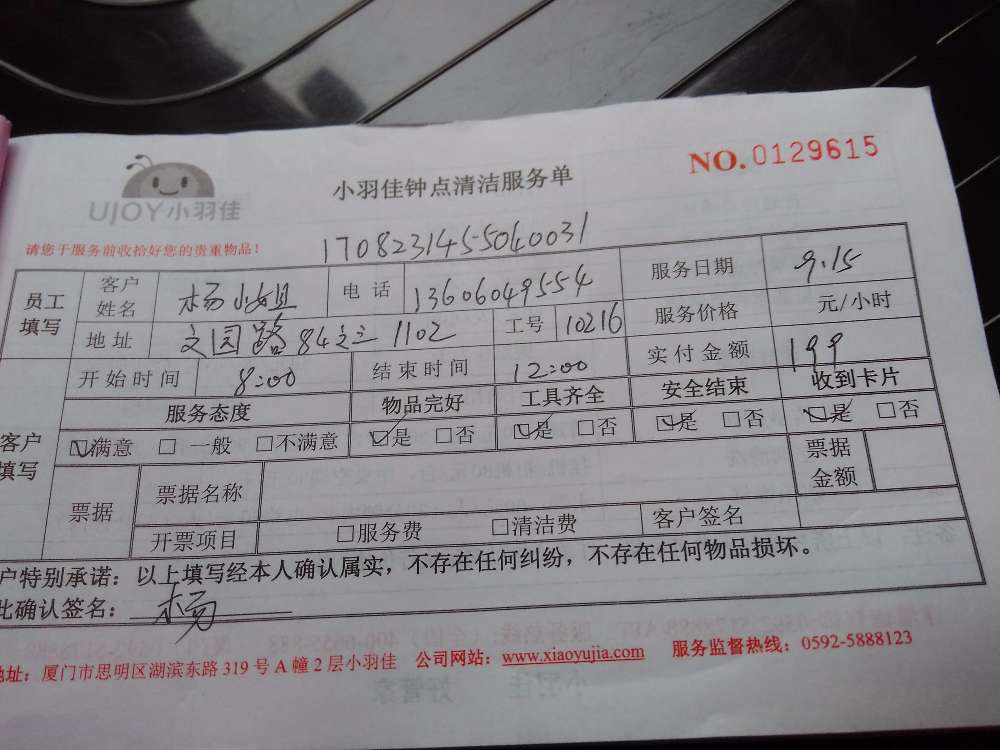 UJOY小羽佳
小羽佳钟点清洁服务单
NO.0129615
请您于服务前收拾好您的贵重物品！
1708231455040031
员工填写 客户姓名 杨小姐 电话 13606049554 服务日期 9.15
地址 文园路84之三 1102 工号 10216 服务价格 元/小时
开始时间 8:00 结束时间 12:00 实付金额 199
客户填写 服务态度 物品完好 工具齐全 安全结束 收到卡片
☑满意 □一般 □不满意 ☑是 □否 ☑是 □否 ☑是 □否 ☑是 □否
票据 票据名称 票据金额
开票项目 □服务费 □清洁费 客户签名
户特别承诺：以上填写经本人确认属实，不存在任何纠纷，不存在任何物品损坏。
此确认签名：杨
地址：厦门市思明区湖滨东路319号A幢2层小羽佳 公司网站：www.xiaoyujia.com 服务监督热线：0592-5888123